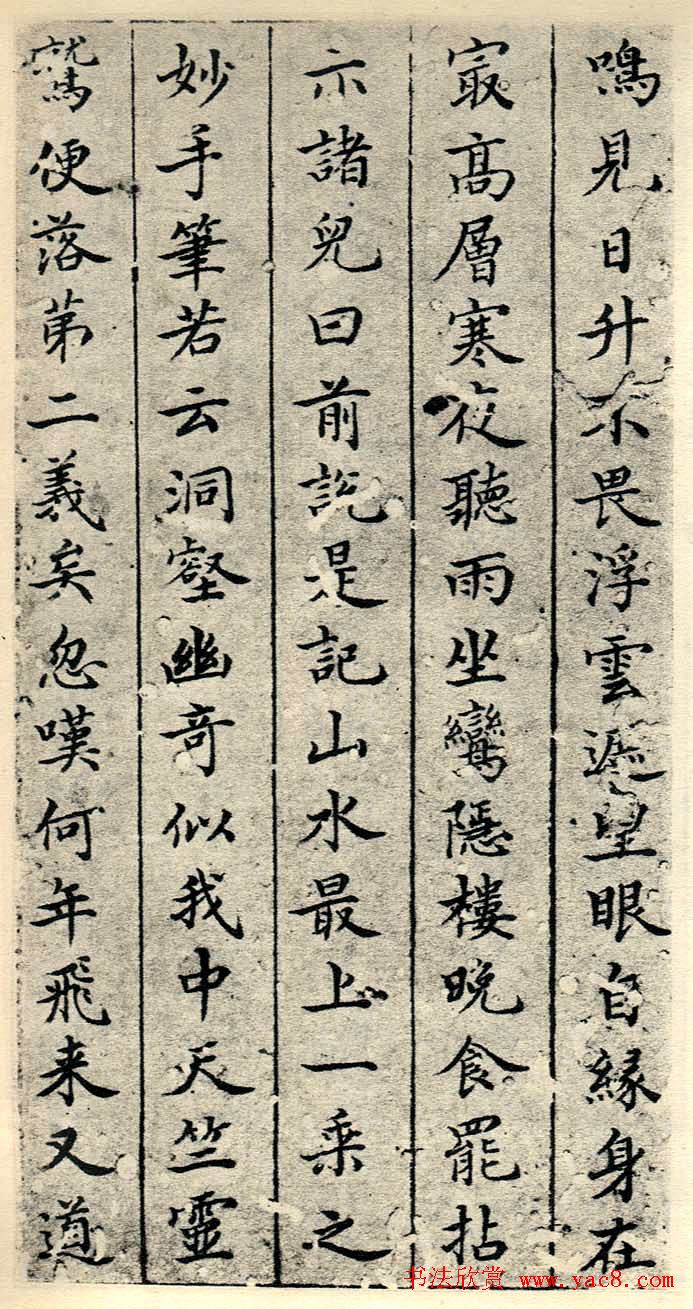 鳴見日升不畏浮雲遮望眼自緣身在
冣高層寒夜聽雨坐鸞隱樓晚食罷拈
示諸兒曰前說是記山水最上一乘之
妙手筆若云洞壑幽奇似我中天竺靈
鷲便落第二義矣忽嘆何年飛来又道
书法欣赏 www.yac8.com